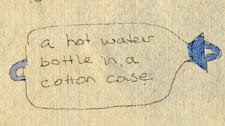 a hot water
bottle in a
cotton case